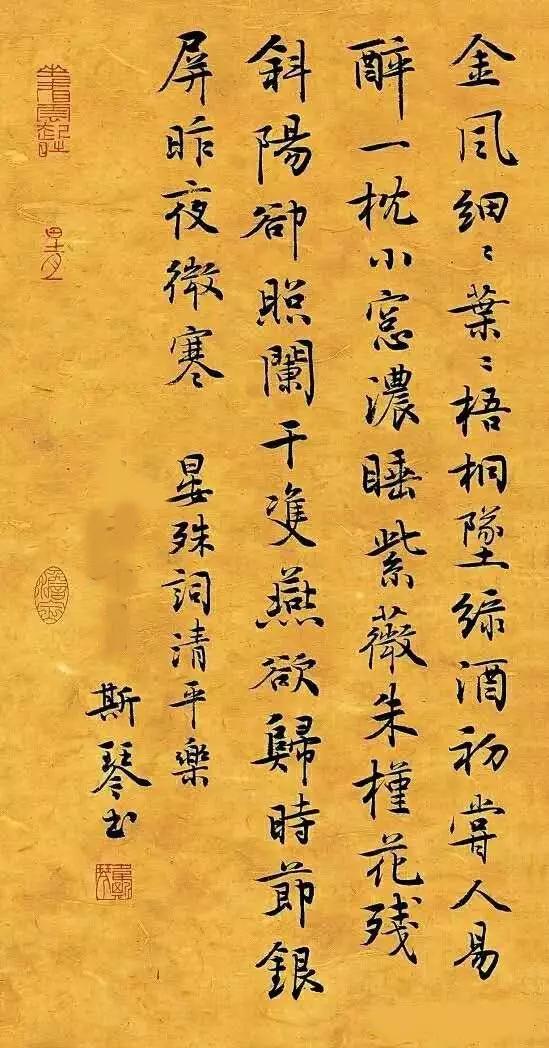 金風細〻葉〻梧桐墜綠酒初嘗人易
醉一枕小窓濃睡紫薇朱槿花残
斜陽卻照闌干雙燕欲歸時節銀
屏昨夜微寒 晏殊詞清平樂
斯琴書